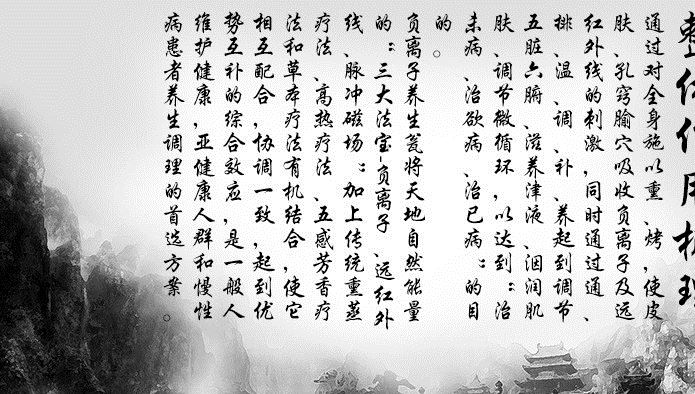 整体作用机理
通过对全身施以熏、烤,使皮
肤、孔窍腧穴吸收负离子及远
红外线的刺激,同时通过通、
排、温、调、补、养起到调节
五脏六腑、滋养津液、洇润肌
肤、调节微循环,以达到:治
未病、治欲病、治已病:的目
的。
负离子养生瓮将天地自然能量
的:三大法宝-负离子、远红外
线、脉冲磁场:加上传统熏蒸
疗法、高热疗法、五感芳香疗
法和草本疗法有机结合,使它
相互配合,协调一致,起到优
势互补的综合效应,是一般人
维护健康,亚健康人群和慢性
病患者养生调理的首选方案。